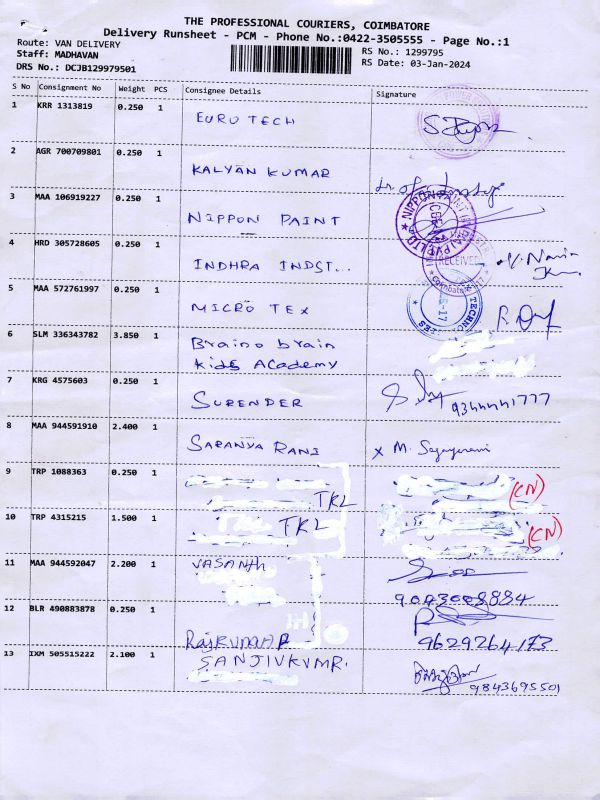 THE PROFESSIONAL COURIERS, COIMBATORE
Delivery Runsheet - PCM - Phone No.:0422-3505555 - Page No.:1
Route: VAN DELIVERY
RS No.: 1299795
Staff: MADHAVAN
RS Date: 03-Jan-2024
DRS No.: DCJB129979501
S No Consignment No Weight PCS Consignee Details Signature
1 KRR 1313819 0.250 1 EURO TECH
2 AGR 700709801 0.250 1 KALYAN KUMAR
3 MAA 106919227 0.250 1 NIPPON PAINT
4 HRD 305728605 0.250 1 INDHRA INDST...
RECEIVED
5 MAA 572761997 0.250 1 MICRO TEX
6 SLM 336343782 3.850 1 Braino brain
Kids Academy
7 KRG 4575603 0.250 1 SURENDER 9344441777
8 MAA 944591910 2.400 1 SARANYA RANI x M.
9 TRP 1088363 0.250 1 TKL (CN)
10 TRP 4315215 1.500 1 TKL (CN)
11 MAA 944592047 2.200 1 VASANTH
9043008884
12 BLR 490883878 0.250 1 RAJKUMAR 9629264173
13 IXM 505515222 2.100 1 SANJIVKUMR.
9843695501